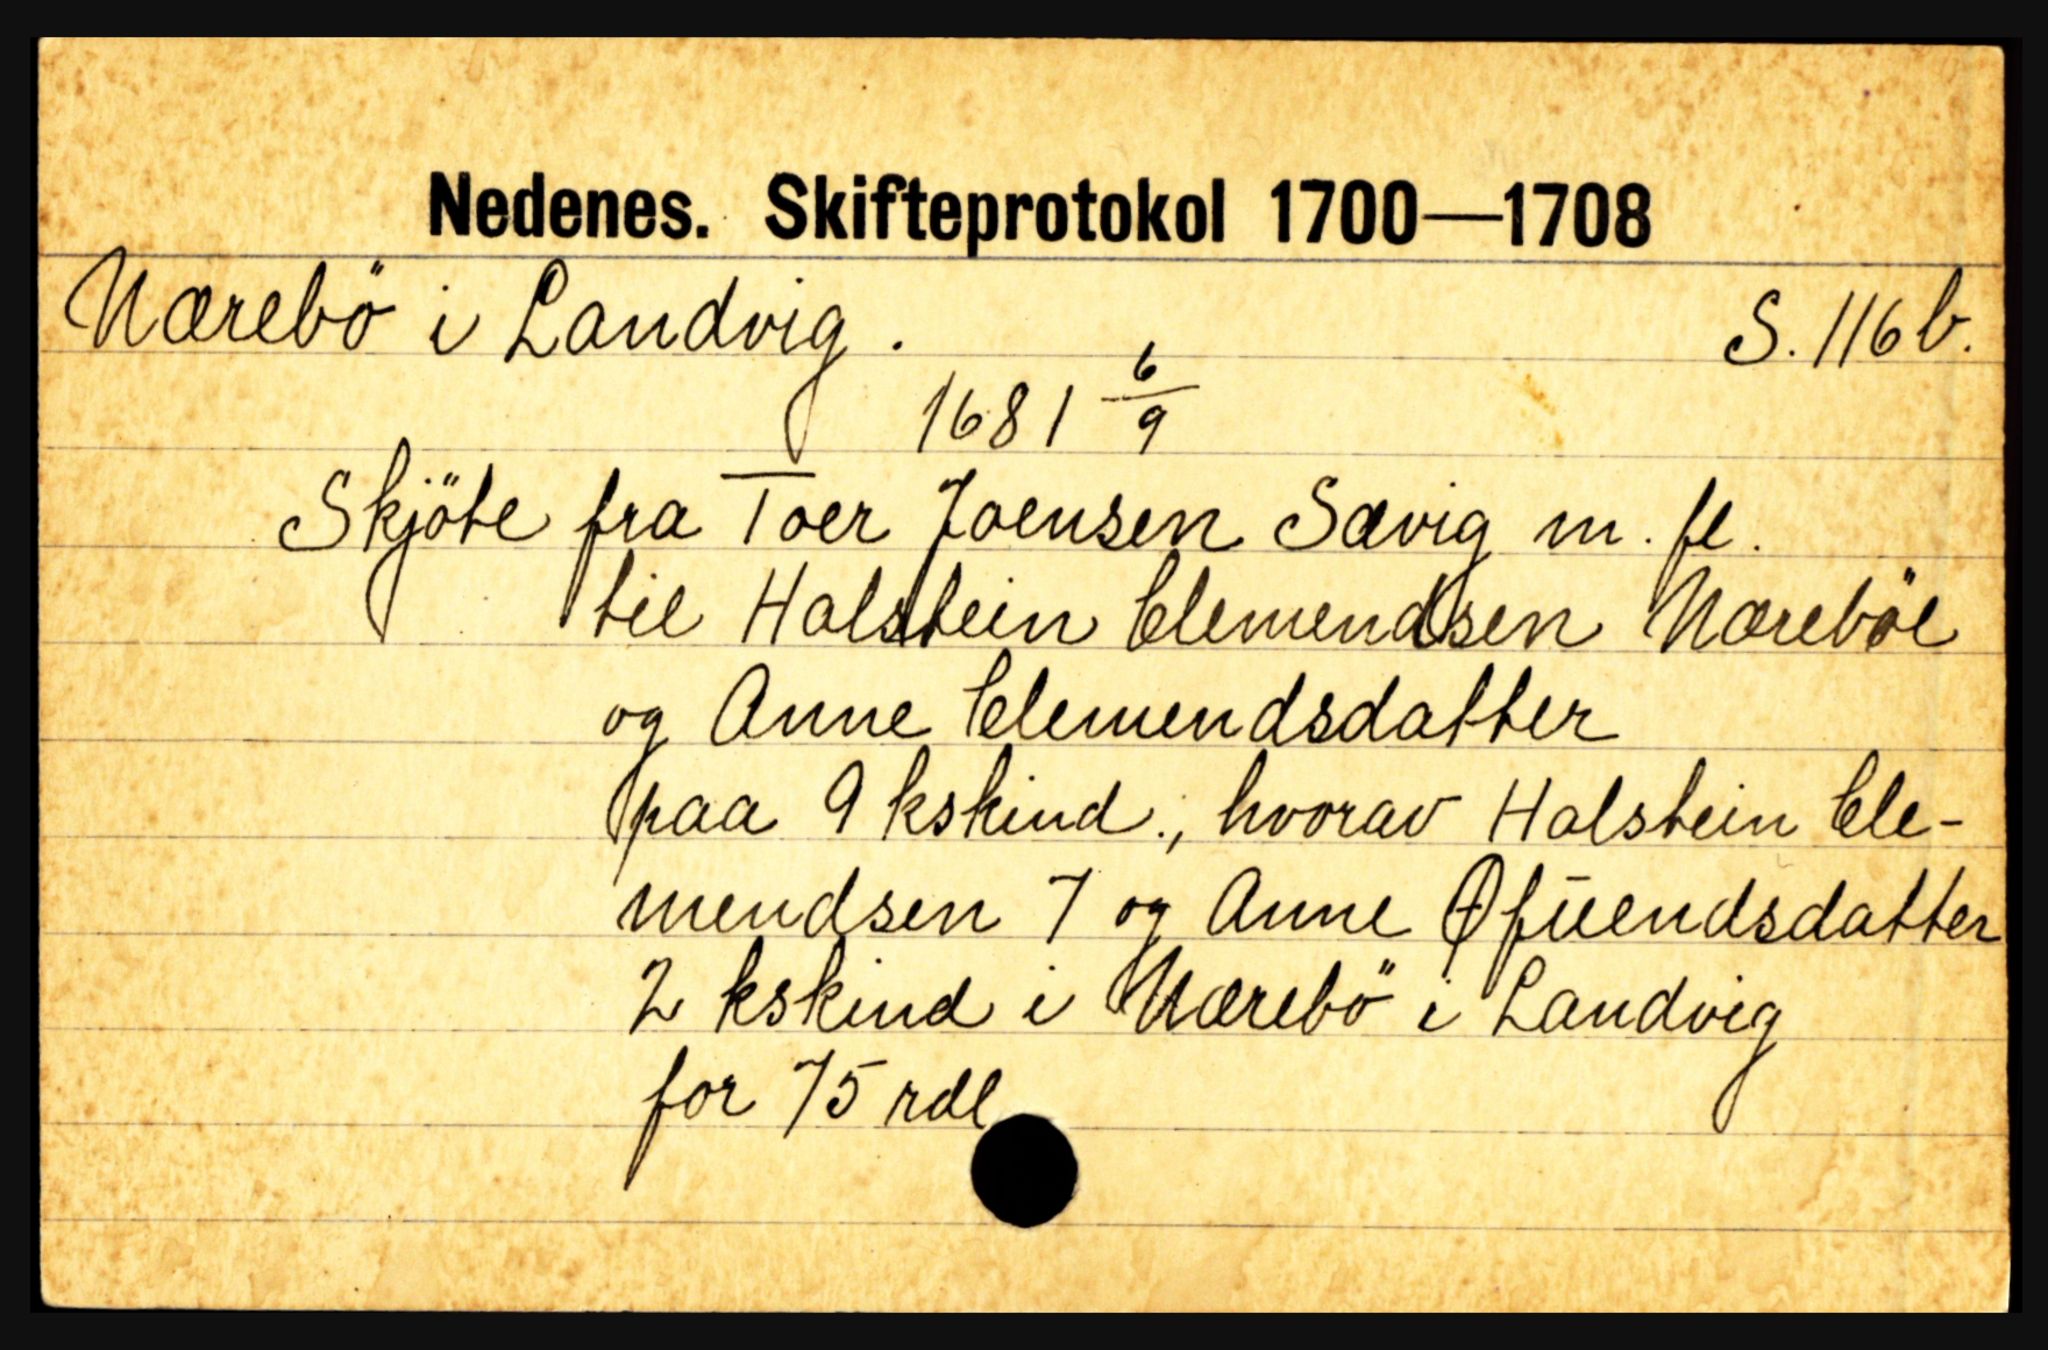 Nedenes. Skifteprotokol 1700—1708
Nærebö i Landvig. S. 116 b.
1681 6/9
Skjöte fra Toer Joensen Sævig m. fl.
til Halstein Clemendsen Næreböe
og Anne Clemendsdatter
paa 9 kskind., hvorav Halstein Cle-
mendsen 7 og Anne Øfuendsdatter
2 kskind i Nærebö i Landvig
for 75 rdl